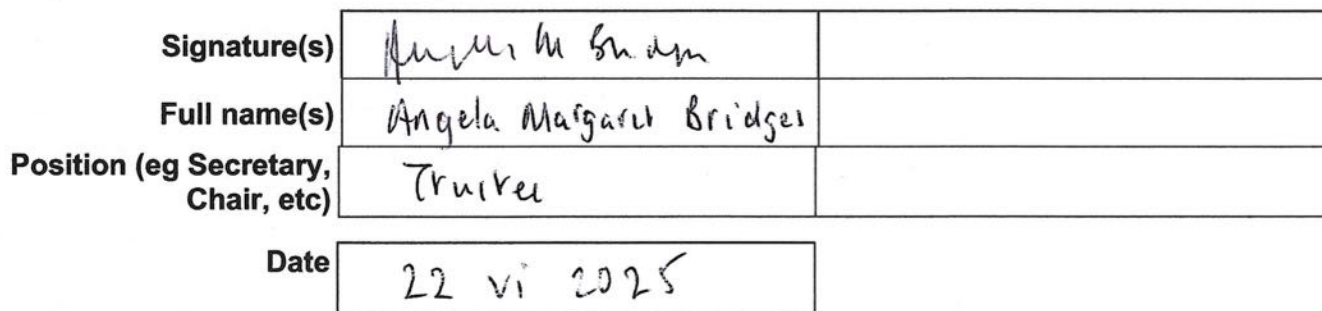 Signature(s)
Full name(s) Angela Margaret Bridges
Position (eg Secretary,
Chair, etc) Trustee
Date 22 vi 2025